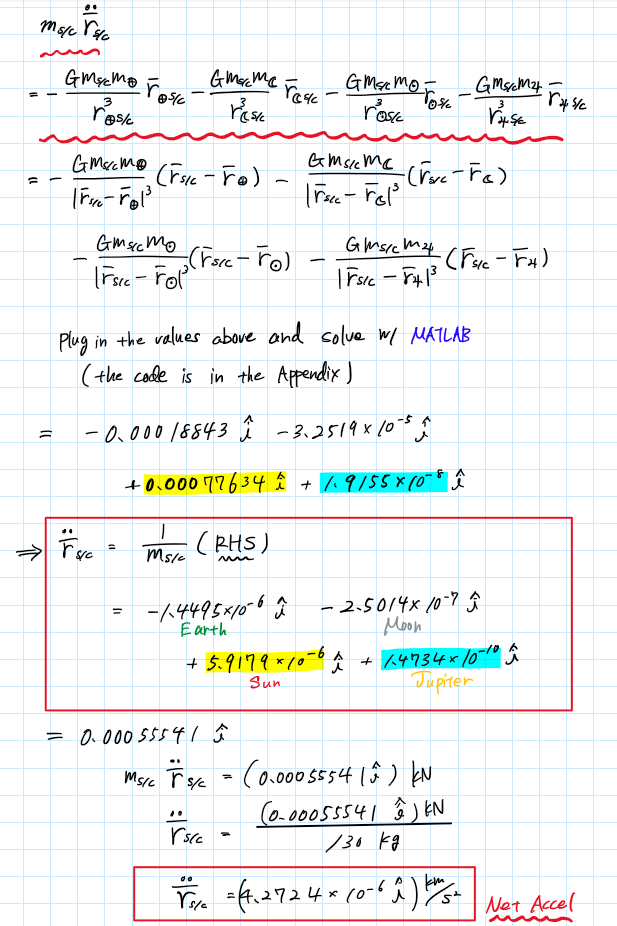 m_s/c r̈_s/c
= - Gm_s/c m_⊕ / r³_⊕s/c r̄_⊕s/c - Gm_s/c m_☾ / r³_☾s/c r̄_☾s/c - Gm_s/c m_⊙ / r³_⊙s/c r̄_⊙s/c - Gm_s/c m_♃ / r³_♃s/c r̄_♃s/c
= - Gm_s/c m_⊕ / |r̄_s/c - r̄_⊕|³ (r̄_s/c - r̄_⊕) - Gm_s/c m_☾ / |r̄_s/c - r̄_☾|³ (r̄_s/c - r̄_☾)
- Gm_s/c m_⊙ / |r̄_s/c - r̄_⊙|³ (r̄_s/c - r̄_⊙) - Gm_s/c m_♃ / |r̄_s/c - r̄_♃|³ (r̄_s/c - r̄_♃)
Plug in the values above and solve w/ MATLAB
(the code is in the Appendix)
= -0.00018843 î -3.2519×10⁻⁵ î
+0.00077634 î + 1.9155×10⁻⁸ î
⇒ r̈_s/c = 1/m_s/c (RHS)
= -1.4495×10⁻⁶ î - 2.5014×10⁻⁷ î
Earth Moon
+ 5.9179×10⁻⁶ î + 1.4734×10⁻¹⁰ î
Sun Jupiter
= 0.00055541 î
m_s/c r̈_s/c = (0.00055541 î) kN
r̈_s/c = (0.00055541 î) kN / 130 kg
r̈_s/c = (4.2724×10⁻⁶ î) km/s² Net Accel